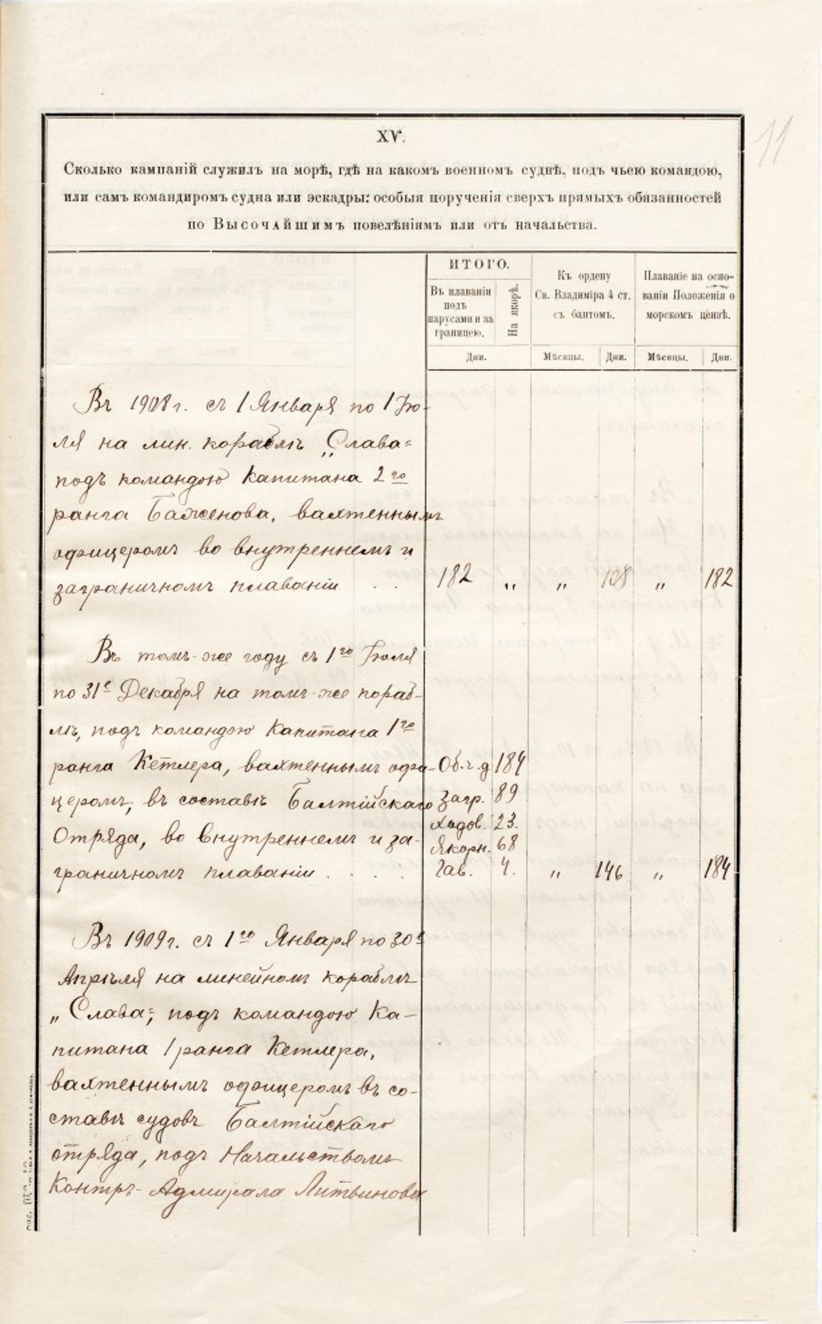 11
XV.
Сколько кампаній служилъ на морѣ, гдѣ на какомъ военномъ суднѣ, подъ чьею командою,
или самъ командиромъ судна или эскадры: особыя порученія сверхъ прямыхъ обязанностей
по Высочайшимъ повелѣніямъ или отъ начальства.
ИТОГО.
Въ плаваніи подъ парусами и за границею.
На якорѣ.
Къ ордену Св. Владиміра 4 ст. съ бантомъ.
Плаваніе на основаніи Положенія о морскомъ цензѣ.
Дни. Мѣсяцы. Дни. Мѣсяцы. Дни.
Въ 1908 г. съ 1 Января по 1 Iю-
ля на лин. кораблѣ „Слава"
подъ командою Капитана 2го
ранга Баженова, вахтеннымъ
офицеромъ во внутреннемъ и
заграничномъ плаваніи . . 182 „ „ 108 „ 182
Въ томъ-же году съ 1го Iюля
по 31е Декабря на томъ-же кораб-
лѣ, подъ командою Капитана 1го
ранга Кетлера, вахтеннымъ офи- Об.ч.д 184
церомъ, въ составѣ Балтійскаго Загр. 89
Отряда, во внутреннемъ и за- Ходов. 23.
Якорн. 68
граничномъ плаваніи . . . . Гав. 4. „ 146 „ 184
Въ 1909 г. съ 1го Января по 30е
Апрѣля на линейномъ кораблѣ
„Слава", подъ командою Ка-
питана 1 ранга Кетлера,
вахтеннымъ офицеромъ въ со-
ставѣ судовъ Балтійскаго
отряда, подъ Начальствомъ
Контръ-Адмирала Литвинова